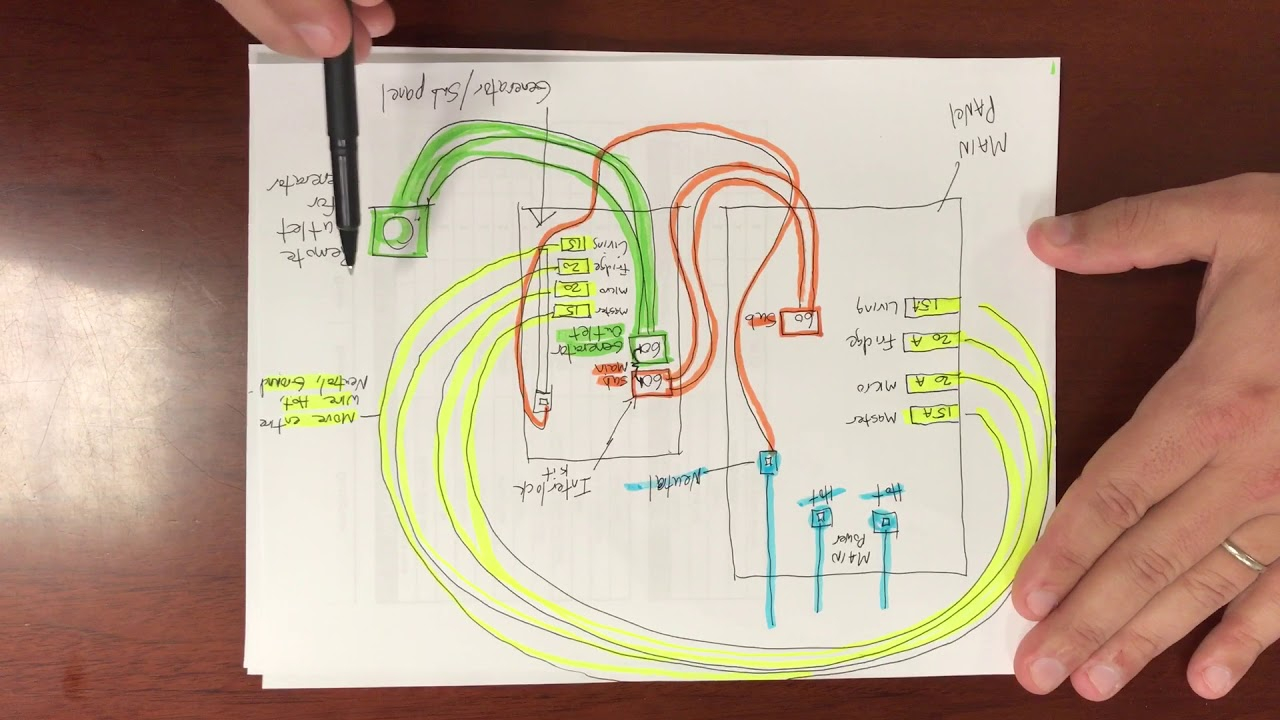 MAIN
Power
Hot
Hot
Neutral
Interlock
kit
Move entire
wire Hot,
Neutral, Ground
15A Master
20A Micro
20A Fridge
15A Living
60A Sub
Main
60A Generator
Outlet
60 Sub
Master 15
Micro 20
Fridge 20
Living 15
Remote
utlet
for
enerator
MAIN
PANEl
Generator/Sub panel